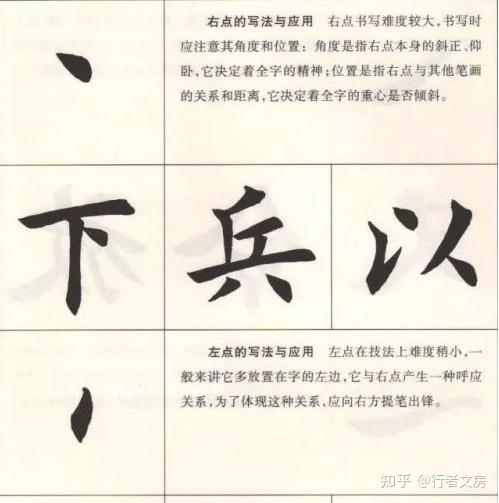 右点的写法与应用 右点书写难度较大,书写时
应注意其角度和位置:角度是指右点本身的斜正、仰
卧,它决定着全字的精神;位置是指右点与其他笔画
的关系和距离,它决定着全字的重心是否倾斜。
下 兵 以
左点的写法与应用 左点在技法上难度稍小,一
般来讲它多放置在字的左边,它与右点产生一种呼应
关系,为了体现这种关系,应向右方提笔出锋。
知乎 @行者文房